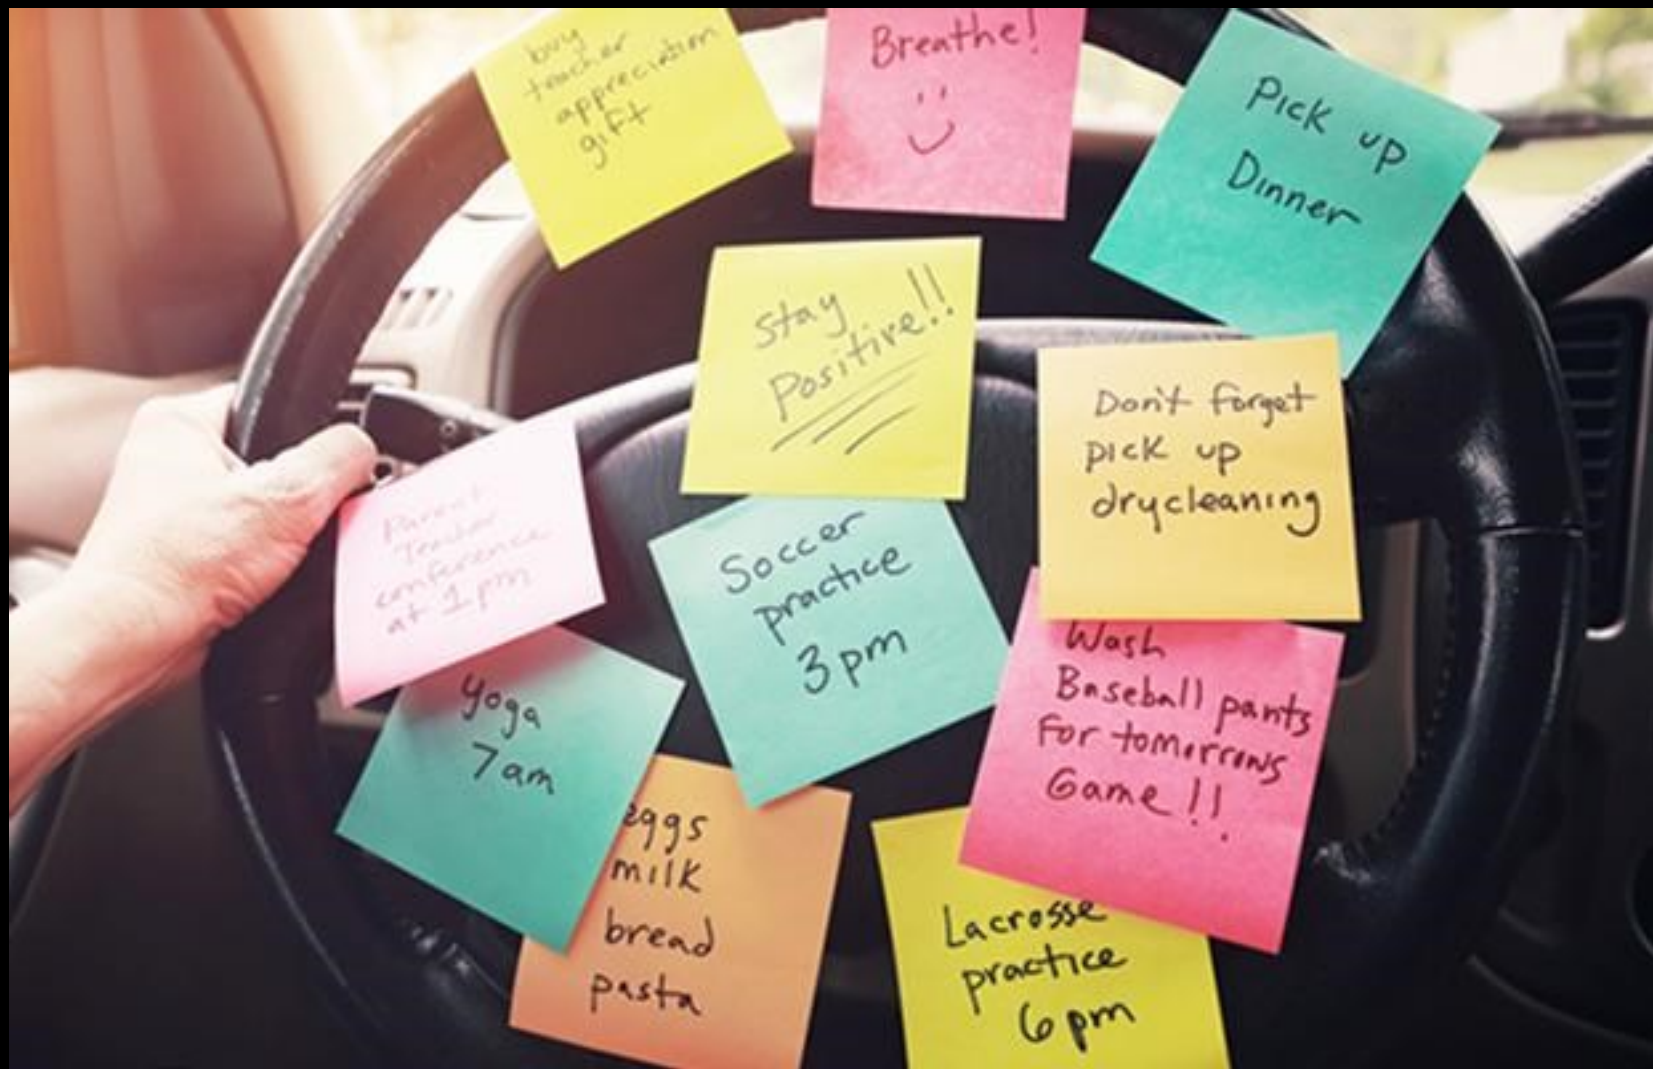 buy
teacher
appreciation
gift
Breathe!
Pick up
Dinner
Stay
Positive!!
Don't forget
pick up
drycleaning
Parent
Teacher
conference
at 1pm
Soccer
practice
3pm
Wash
Baseball pants
For tomorrows
Game!!
Yoga
7am
eggs
milk
bread
pasta
Lacrosse
practice
6pm